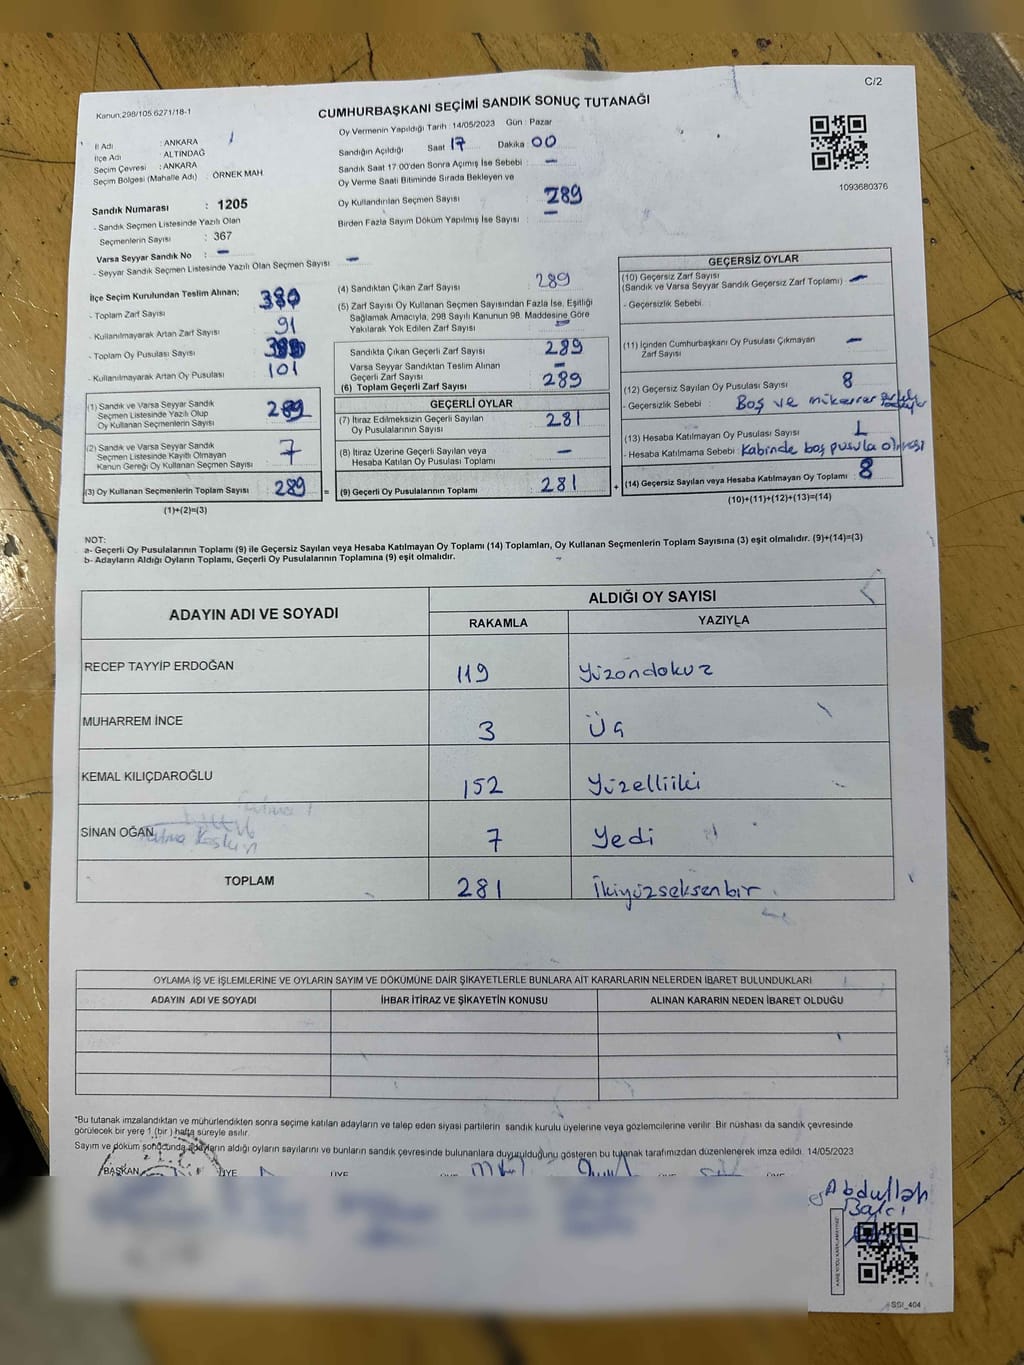 C/2
Kanun:298/105.6271/18-1
CUMHURBAŞKANI SEÇİMİ SANDIK SONUÇ TUTANAĞI
Oy Vermenin Yapıldığı Tarih : 14/05/2023 Gün : Pazar
İl Adı : ANKARA
İlçe Adı : ALTINDAĞ
Seçim Çevresi : ANKARA
Seçim Bölgesi (Mahalle Adı) : ÖRNEK MAH
Sandığın Açıldığı Saat 17 Dakika : 00
Sandık Saat 17.00'den Sonra Açımış İse Sebebi : -
Oy Verme Saati Bitiminde Sırada Bekleyen ve
Oy Kullandırılan Seçmen Sayısı : 289
Birden Fazla Sayım Döküm Yapılmış İse Sayısı : -
1093680376
Sandık Numarası : 1205
- Sandık Seçmen Listesinde Yazılı Olan
Seçmenlerin Sayısı : 367
Varsa Seyyar Sandık No : -
- Seyyar Sandık Seçmen Listesinde Yazılı Olan Seçmen Sayısı : -
İlçe Seçim Kurulundan Teslim Alınan;
- Toplam Zarf Sayısı :
- Kullanılmayarak Artan Zarf Sayısı : 91
- Toplam Oy Pusulası Sayısı :
- Kullanılmayarak Artan Oy Pusulası : 101
(1) Sandık ve Varsa Seyyar Sandık
Seçmen Listesinde Yazılı Olup
Oy Kullanan Seçmenlerin Sayısı :
(2) Sandık ve Varsa Seyyar Sandık
Seçmen Listesinde Kayıtlı Olmayan
Kanun Gereği Oy Kullanan Seçmen Sayısı : 7
(3) Oy Kullanan Seçmenlerin Toplam Sayısı : 289 =
(1)+(2)=(3)
(4) Sandıktan Çıkan Zarf Sayısı : 289
(5) Zarf Sayısı Oy Kullanan Seçmen Sayısından Fazla İse, Eşitliği
Sağlamak Amacıyla, 298 Sayılı Kanunun 98. Maddesine Göre
Yakılarak Yok Edilen Zarf Sayısı : -
Sandıkta Çıkan Geçerli Zarf Sayısı : 289
Varsa Seyyar Sandıktan Teslim Alınan
Geçerli Zarf Sayısı : -
(6) Toplam Geçerli Zarf Sayısı : 289
GEÇERLİ OYLAR
(7) İtiraz Edilmeksizin Geçerli Sayılan
Oy Pusulalarının Sayısı : 281
(8) İtiraz Üzerine Geçerli Sayılan veya
Hesaba Katılan Oy Pusulası Toplamı : -
(9) Geçerli Oy Pusulalarının Toplamı : 281 +
GEÇERSİZ OYLAR
(10) Geçersiz Zarf Sayısı
(Sandık ve Varsa Seyyar Sandık Geçersiz Zarf Toplamı) : -
- Geçersizlik Sebebi :
(11) İçinden Cumhurbaşkanı Oy Pusulası Çıkmayan
Zarf Sayısı : -
(12) Geçersiz Sayılan Oy Pusulası Sayısı : 8
- Geçersizlik Sebebi : Boş ve mükerrer
(13) Hesaba Katılmayan Oy Pusulası Sayısı :
- Hesaba Katılmama Sebebi : Kabinde boş pusula olması
(14) Geçersiz Sayılan veya Hesaba Katılmayan Oy Toplamı : 8
(10)+(11)+(12)+(13)=(14)
NOT:
a- Geçerli Oy Pusulalarının Toplamı (9) ile Geçersiz Sayılan veya Hesaba Katılmayan Oy Toplamı (14) Toplamları, Oy Kullanan Seçmenlerin Toplam Sayısına (3) eşit olmalıdır. (9)+(14)=(3)
b- Adayların Aldığı Oyların Toplamı, Geçerli Oy Pusulalarının Toplamına (9) eşit olmalıdır.
ADAYIN ADI VE SOYADI
ALDIĞI OY SAYISI
RAKAMLA YAZIYLA
RECEP TAYYİP ERDOĞAN 119 Yüzondokuz
MUHARREM İNCE 3 Üç
KEMAL KILIÇDAROĞLU 152 Yüzelliiki
SİNAN OĞAN 7 Yedi
TOPLAM 281 İkiyüzseksenbir
OYLAMA İŞ VE İŞLEMLERİNE VE OYLARIN SAYIM VE DÖKÜMÜNE DAİR ŞİKAYETLERLE BUNLARA AİT KARARLARIN NELERDEN İBARET BULUNDUKLARI
ADAYIN ADI VE SOYADI İHBAR İTİRAZ VE ŞİKAYETİN KONUSU ALINAN KARARIN NEDEN İBARET OLDUĞU
*Bu tutanak imzalandıktan ve mühürlendikten sonra seçime katılan adayların ve talep eden siyasi partilerin sandık kurulu üyelerine veya gözlemcilerine verilir. Bir nüshası da sandık çevresinde
görülecek bir yere 1 (bir ) hafta süreyle asılır.
Sayım ve döküm sonucunda adayların aldığı oyların sayılarını ve bunların sandık çevresinde bulunanlara duyurulduğunu gösteren bu tutanak tarafımızdan düzenlenerek imza edildi. 14/05/2023
BAŞKAN ÜYE ÜYE
Abdullah
Balcı
SSI_404